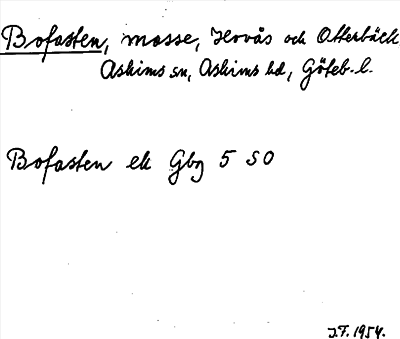 Bofasten, mosse, Hovås och Otterbäck
Askims sn, Askims hd, Göteb. l.
Bofasten ek Gbg 5 SO
J.F. 1954.